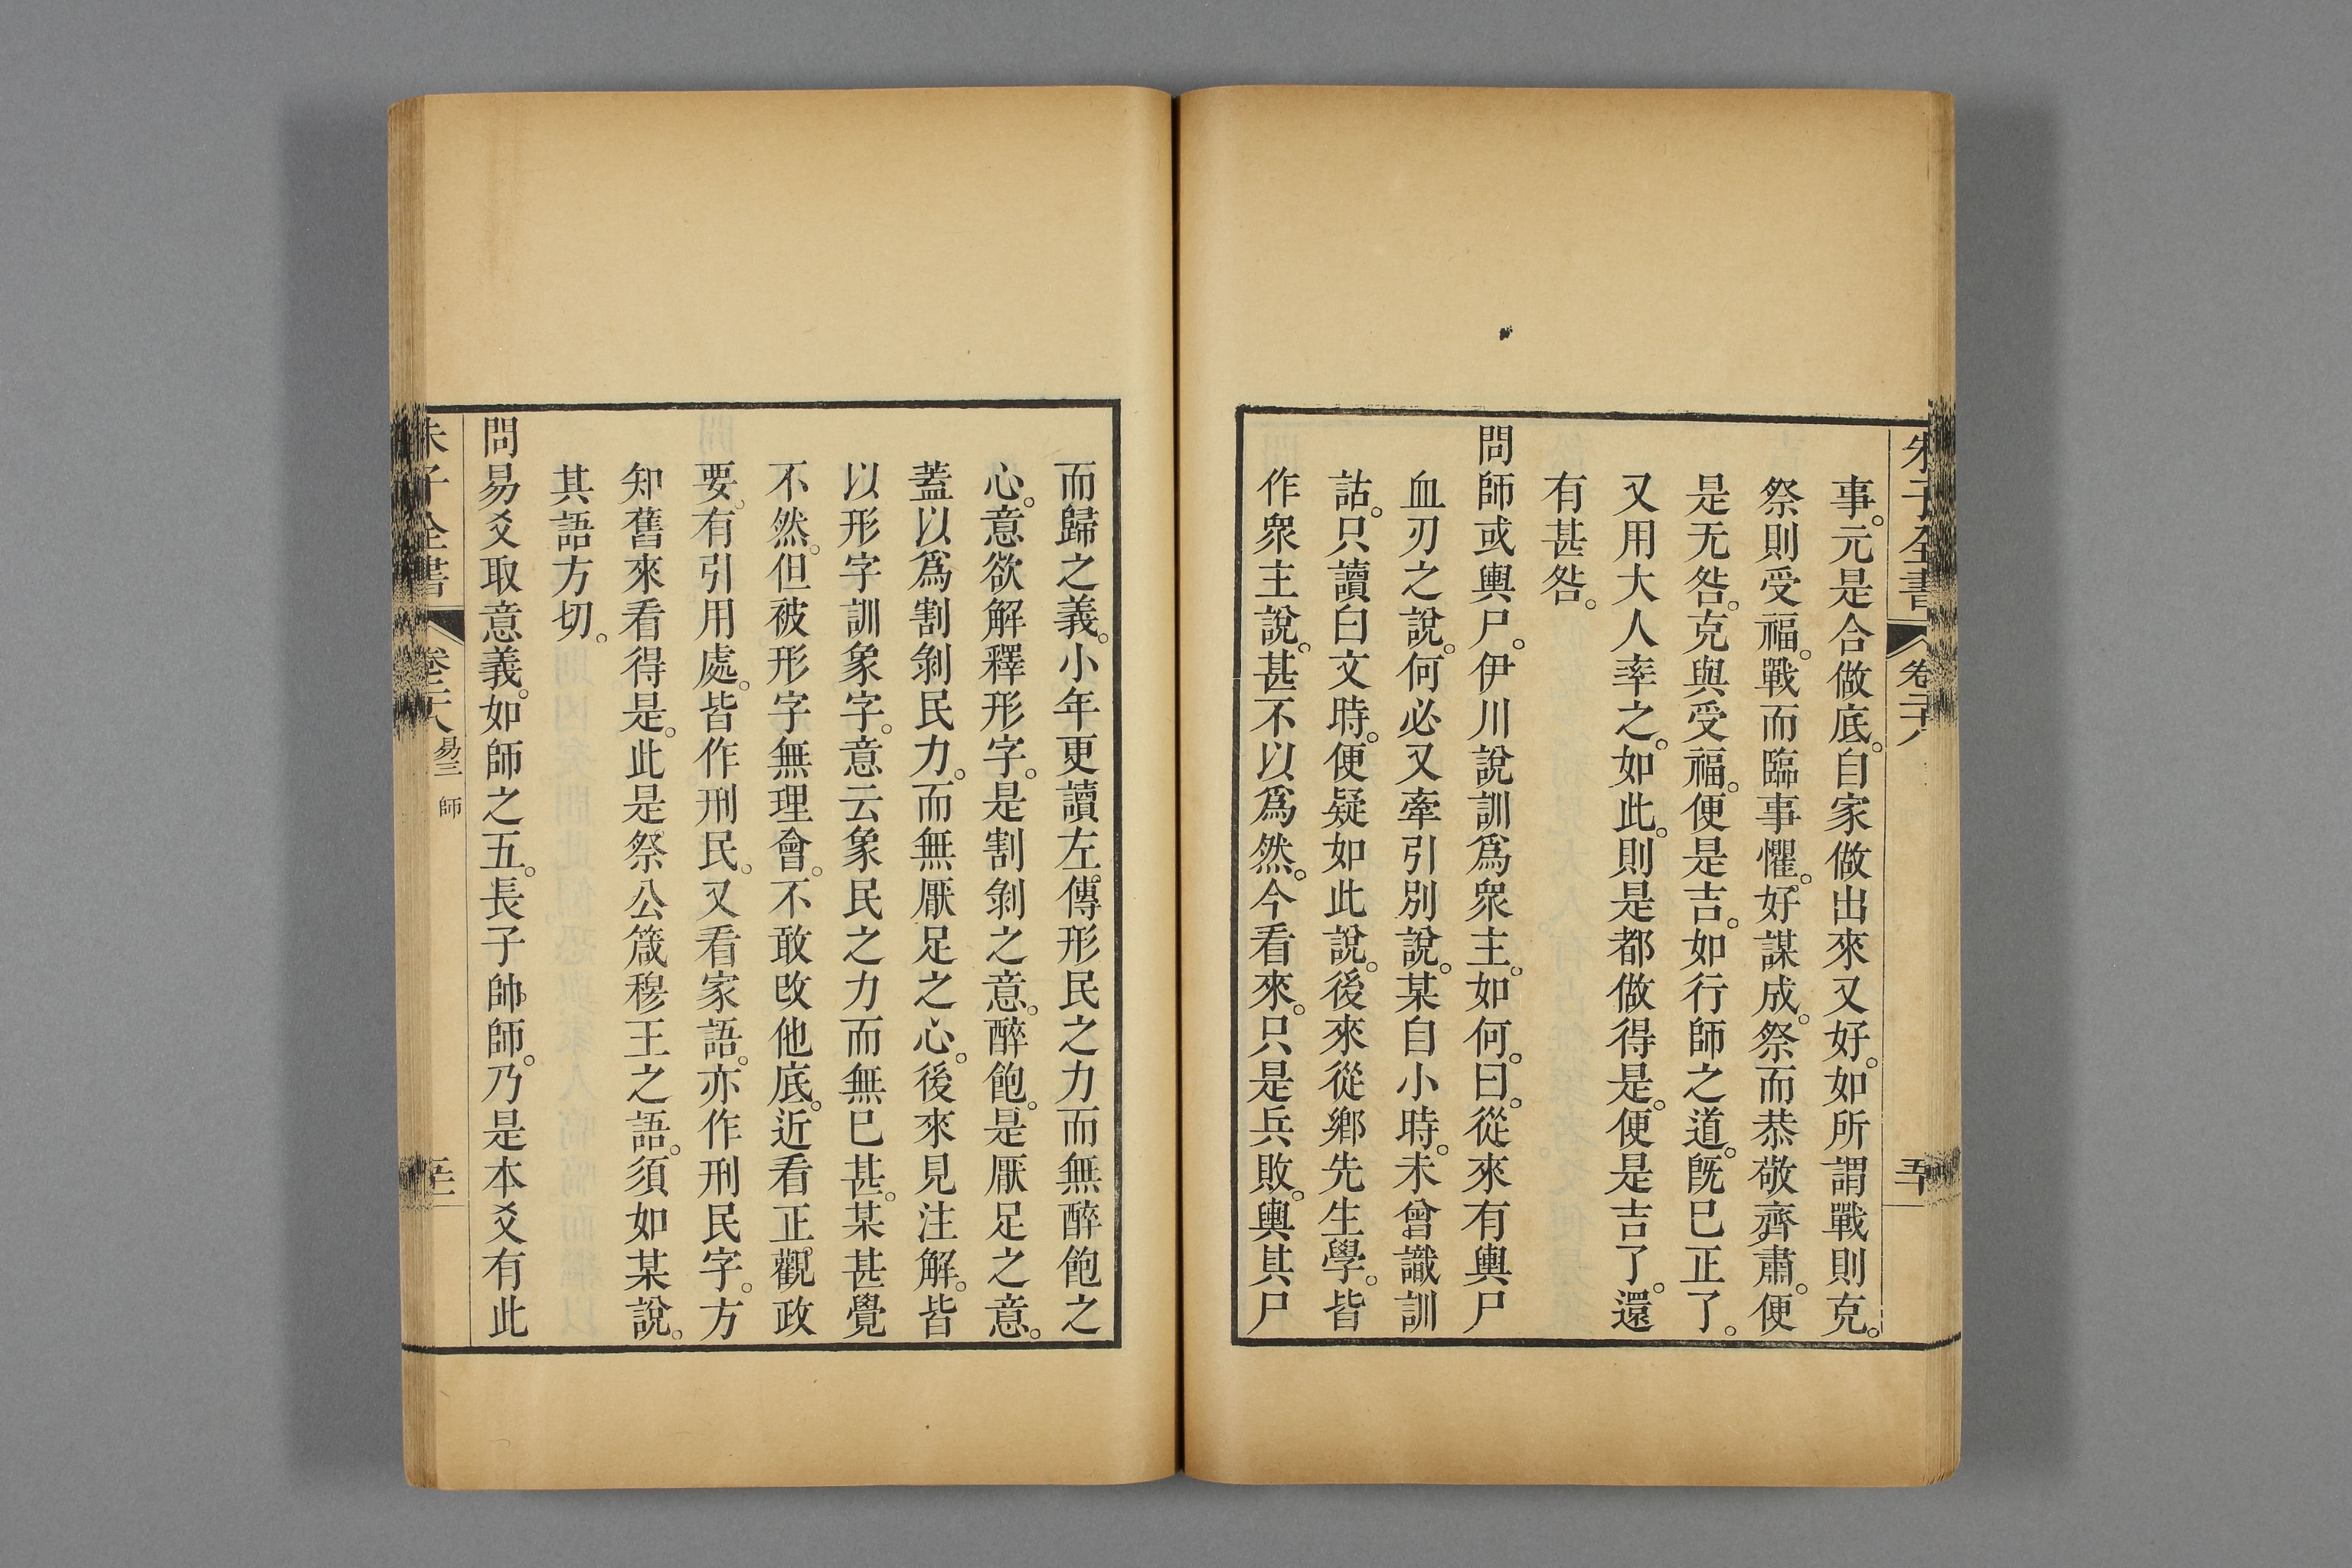 朱子全書 卷二十八 五十
事。元是合做底。自家做出來又好。如所謂戰則克。
祭則受福。戰而臨事懼。好謀成。祭而恭敬齊肅。便
是无咎。克與受福。便是吉。如行師之道。旣已正了。
又用大人率之。如此。則是都做得是。便是吉了。還
有甚咎。
問師或輿尸。伊川說訓爲衆主。如何。曰。從來有輿尸
血刃之說。何必又牽引別說。某自小時。未曾識訓
詁。只讀白文時。便疑如此說。後來從鄉先生學。皆
作衆主說。甚不以爲然。今看來。只是兵敗。輿其尸
而歸之義。小年更讀左傳形民之力而無醉飽之
心。意欲解釋形字。是割剝之意。醉飽。是厭足之意。
蓋以爲割剝民力。而無厭足之心。後來見注解。皆
以形字訓象字。意云象民之力而無已甚。某甚覺
不然。但被形字無理會。不敢改他底。近看正觀政
要。有引用處。皆作刑民。又看家語。亦作刑民字。方
知舊來看得是。此是祭公箴穆王之語。須如某說。
其語方切。
問易爻取意義。如師之五。長子帥師。乃是本爻有此
朱子全書 卷二十八 易三 師